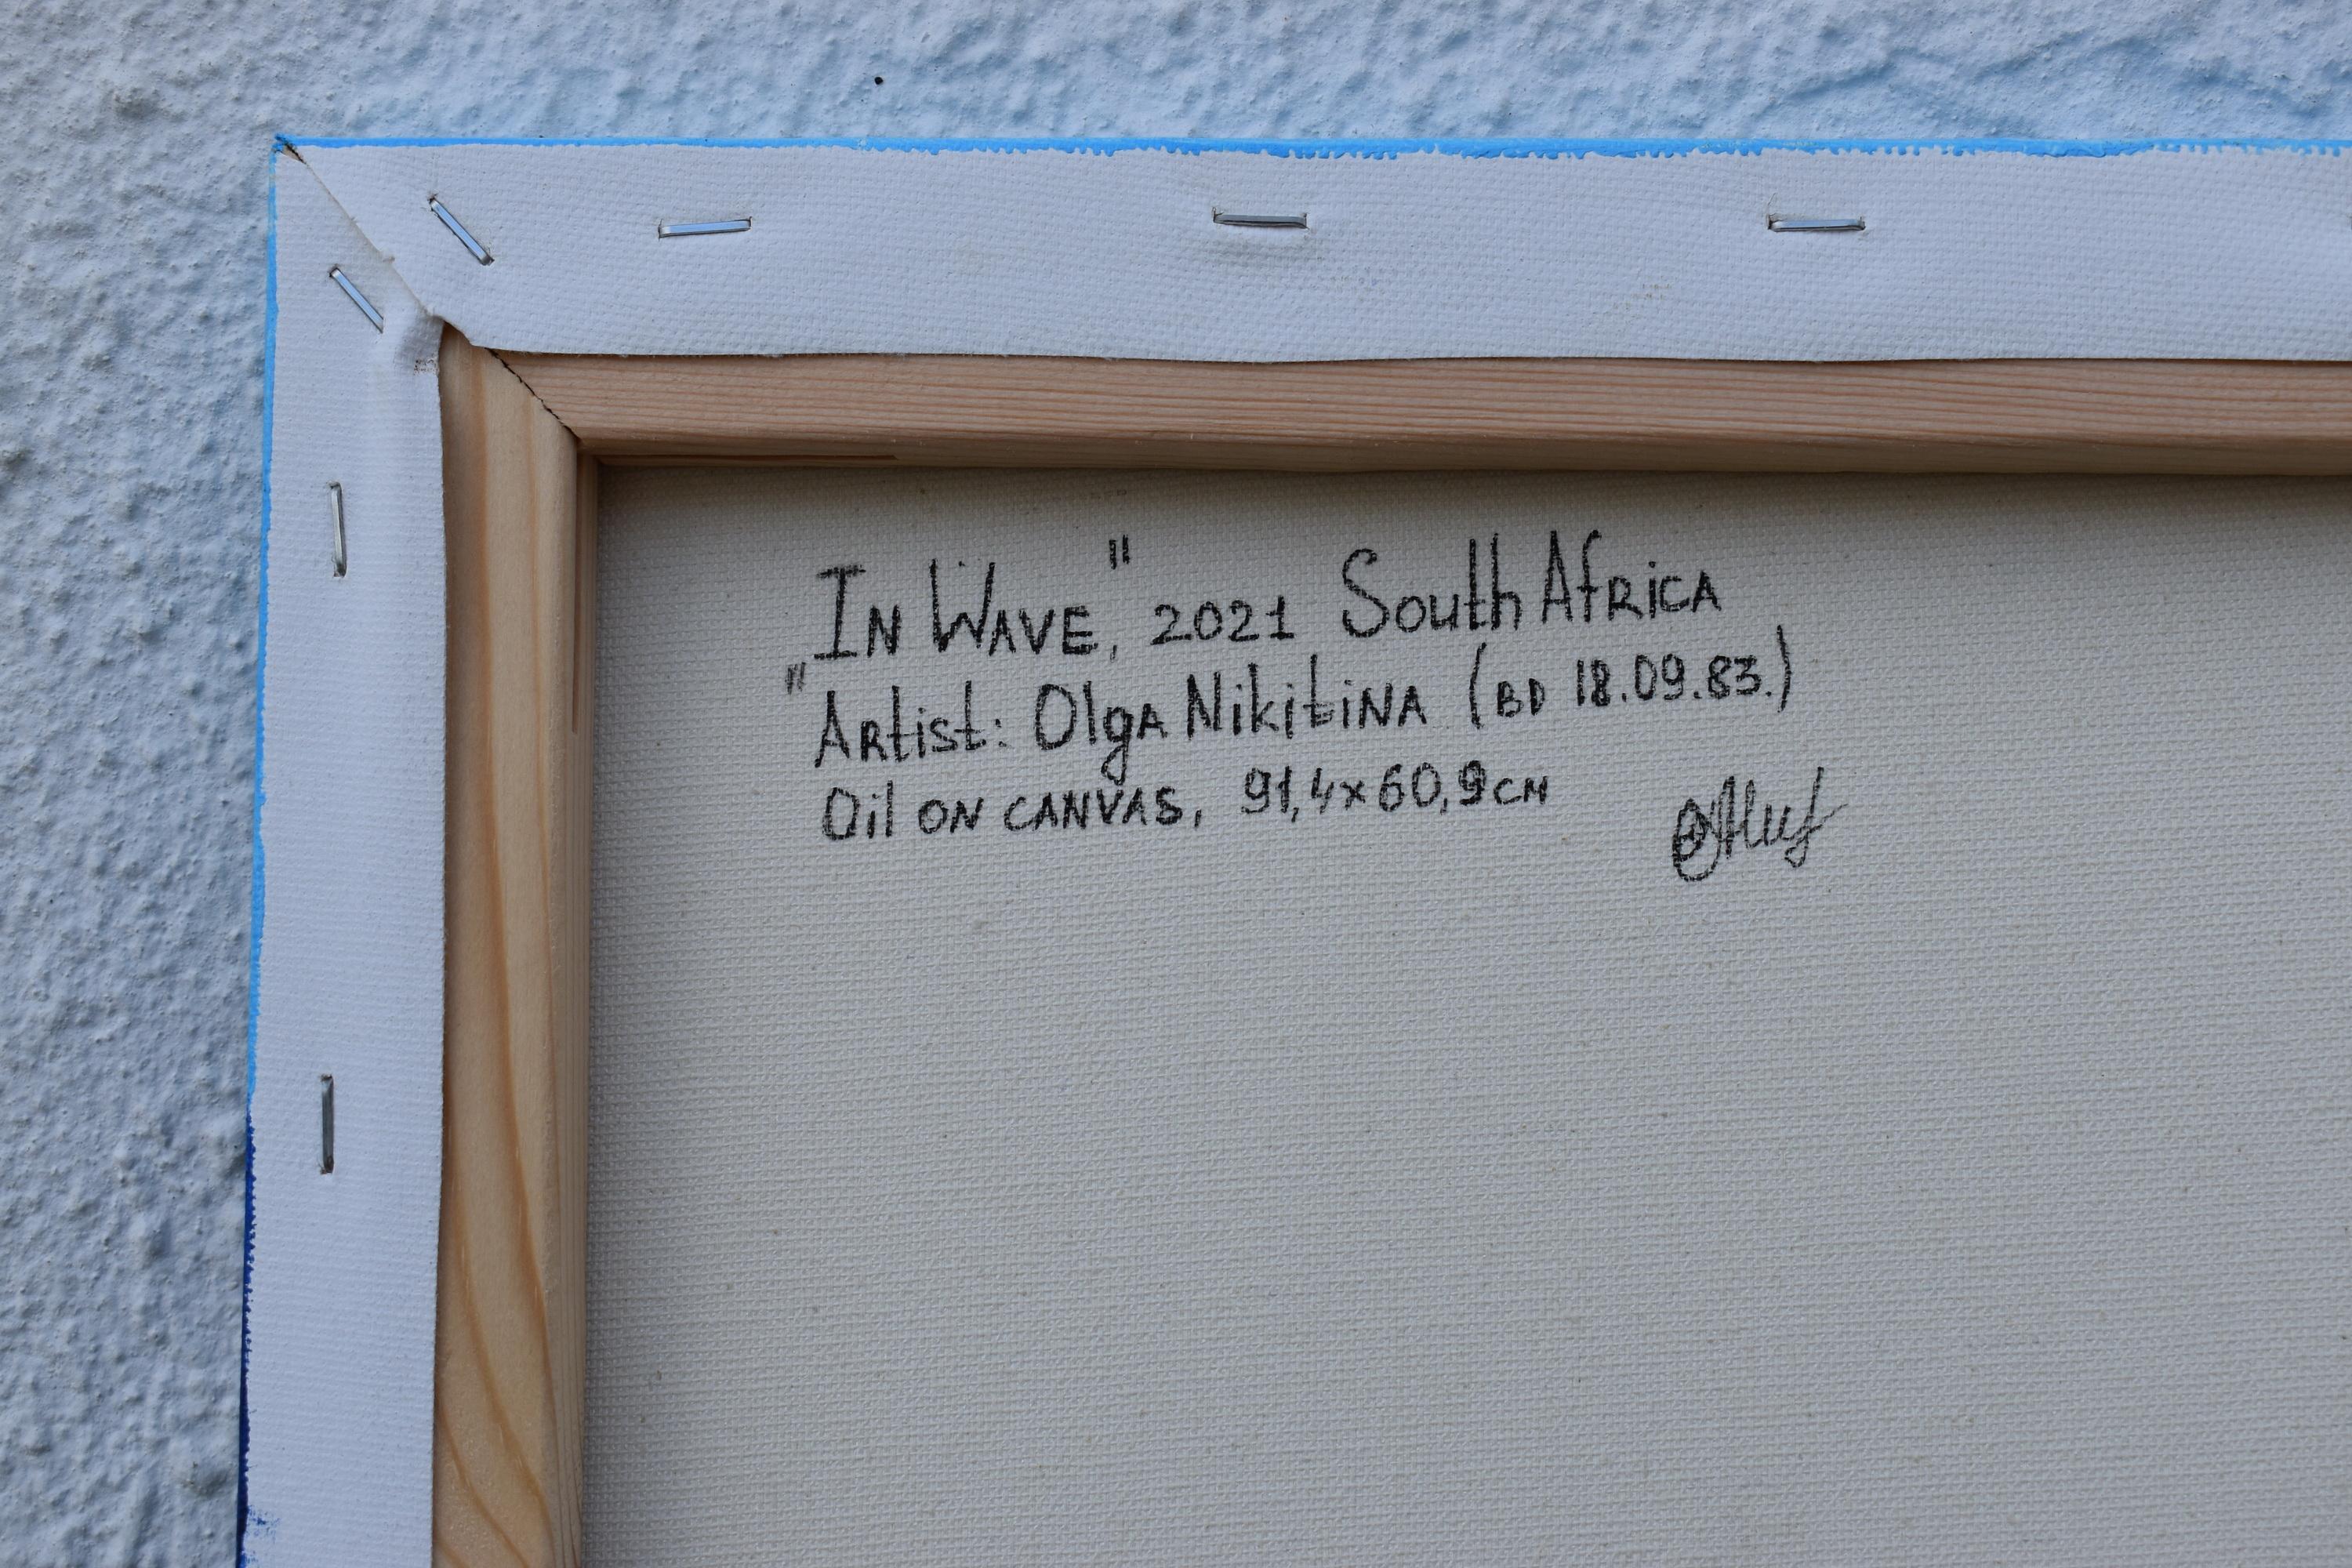 "In Wave", 2021 South Africa
Artist: Olga Nikitina (BD 18.09.83.)
Oil on canvas, 91,4x60,9cм